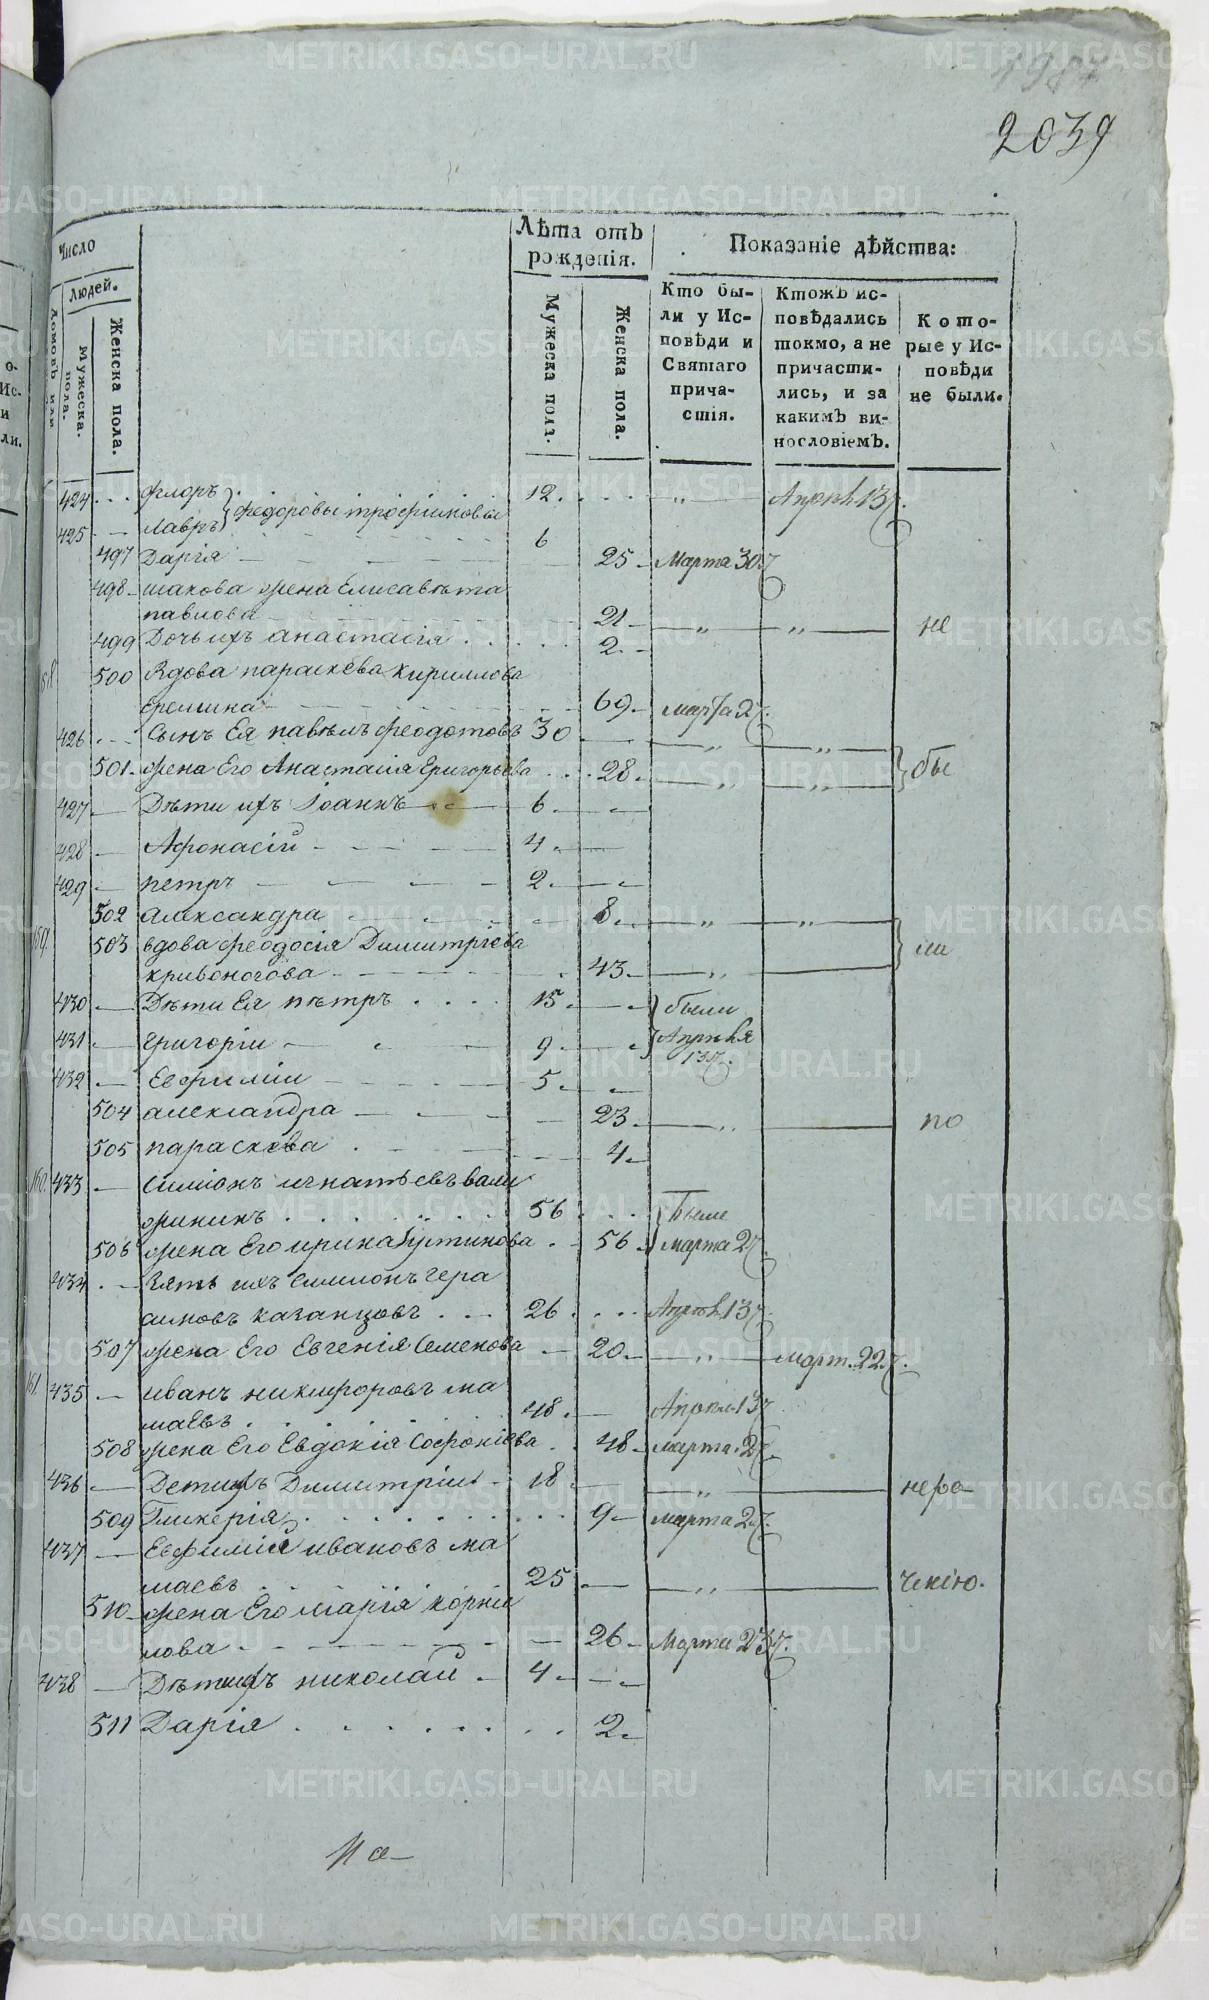 2039
Число
Людей.
Домовъ или
Мужеска.
пола.
Женска пола.
Лѣта отъ
рожденія.
Мужеска пола.
Женска пола.
Показаніе дѣйства:
Кто бы-
ли у Ис-
повѣди и
Святаго
прича-
стія.
Ктожъ ис-
повѣдались
токмо, а не
причасти-
лись, и за
какимъ ви-
нословіемъ.
Кото-
рые у Ис-
повѣди
не были.
424 Флоръ 12 „
425 Лавръ 6
497 Дарія 25 Марта 30
498 жена Елисавѣта
павлова 21 „ „ не
499 Дочь ихъ анастасія 2
500 Вдова параскева кириллова
Еремина 69 марта 27
426 Сынъ Ея павелъ феодотовъ 30 „ „
501 жена Его Анастасія Григорьева 28 „ „ бы
427 Дѣти ихъ Іоаннъ 6
428 Афонасій 4
429 петръ 2
502 александра 8 „ „
159 503 вдова феодосія Димитріева ли
кривоногова 43 „
430 Дѣти Ея петръ 15 были
431 григоріи 9 Апрѣля
13
432 Евфиміи 5
504 александра 23 „ по
505 параскева 4
160 433 Симіонъ игнатьевъ вали
жининъ 56 были
506 жена Его ирина 56 марта 27
434 Зять ихъ Симионъ гера
симовъ казанцовъ 26 Апрѣл. 13
507 жена Его Евгенія Семенова 20 „ март. 22
161 435 иванъ никифоровъ ма
маевъ 48 Апрѣл. 13
508 жена Его Евдокія Софоніева 48 марта 27
436 Дети ихъ Димитріи 18 „ нера
509 Гликерія 9 марта 27
437 Евфиміи ивановъ ма
маевъ 25 „ ченію.
510 жена Его марія корни
лова 26 Марта 23
438 Дѣти ихъ николай 4
511 Дарія 2